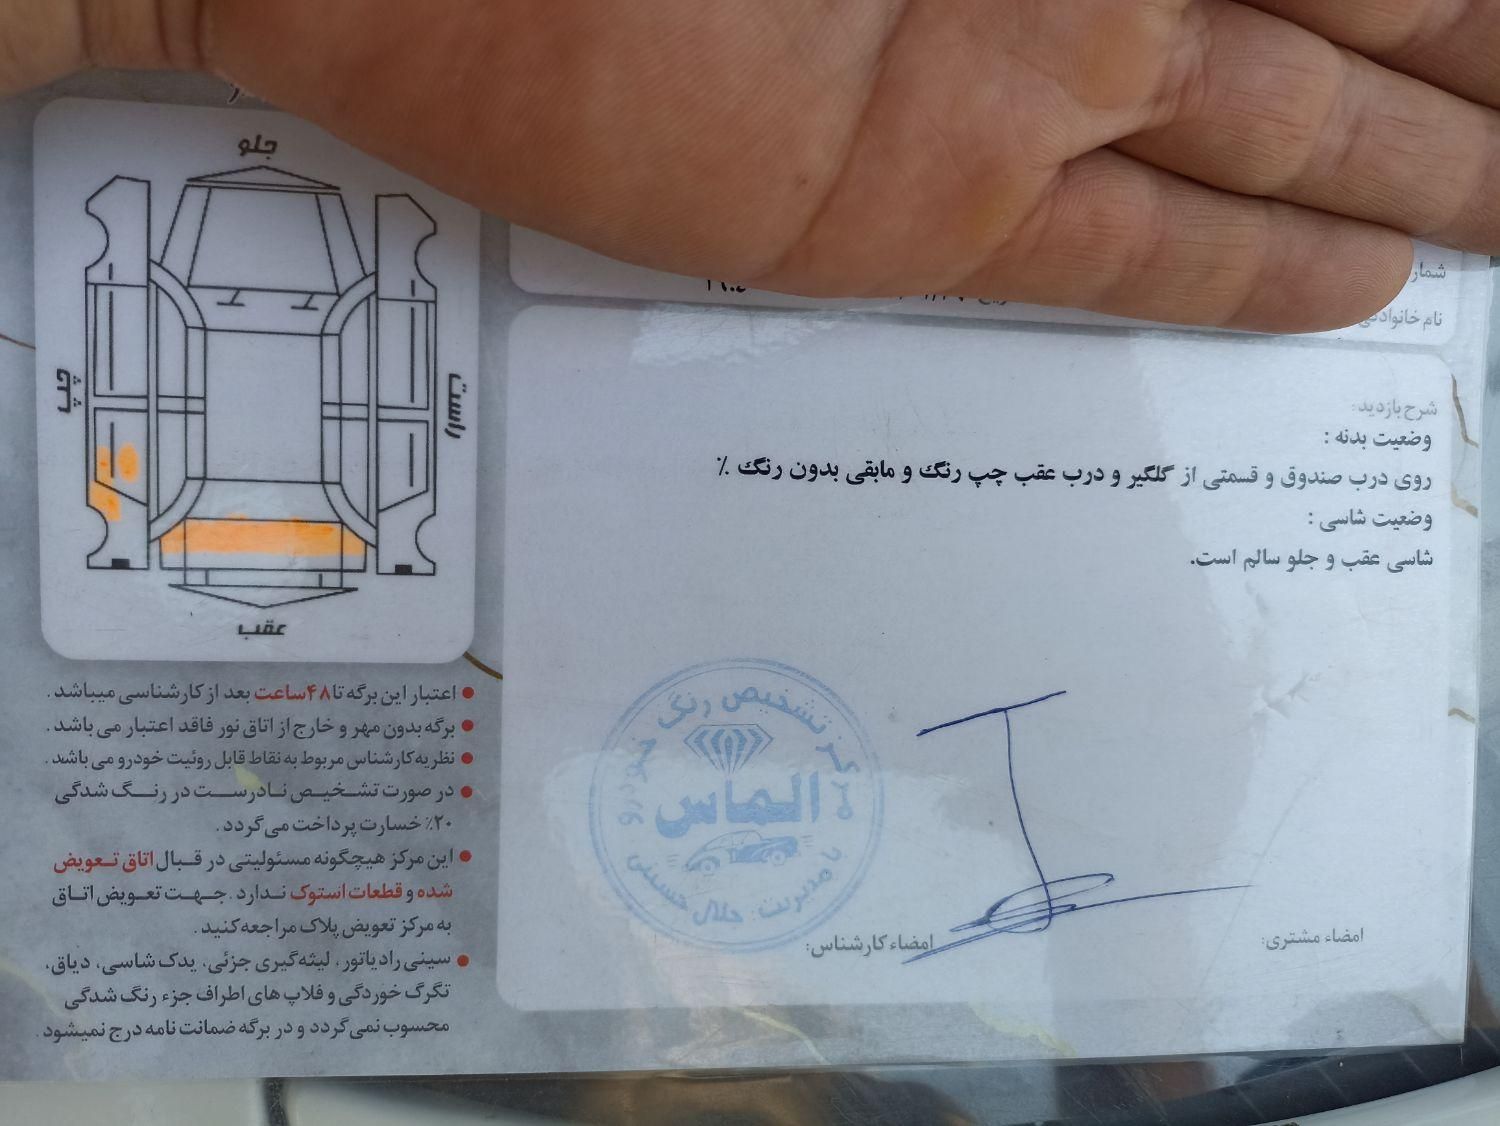 جلو
چپ
راست
عقب
شرح بازدید:
وضعیت بدنه :
روی درب صندوق و قسمتی از گلگیر و درب عقب چپ رنگ و مابقی بدون رنگ ٪
وضعیت شاسی :
شاسی عقب و جلو سالم است.
اعتبار این برگه تا ۴۸ ساعت بعد از کارشناسی میباشد .
برگه بدون مهر و خارج از اتاق نور فاقد اعتبار می باشد .
نظریه کارشناس مربوط به نقاط قابل روئیت خودرو می باشد .
در صورت تشخیص نادرست در رنگ شدگی
۲۰٪ خسارت پرداخت می‌گردد .
این مرکز هیچگونه مسئولیتی در قبال اتاق تعویض
شده و قطعات استوک ندارد . جهت تعویض اتاق
به مرکز تعویض پلاک مراجعه کنید .
سینی رادیاتور، لیثه‌گیری جزئی، یدک شاسی، دیاق،
تگرگ خوردگی و فلاپ های اطراف جزء رنگ شدگی
محسوب نمی گردد و در برگه ضمانت نامه درج نمیشود .
مرکز تشخیص رنگ خودرو
الماس
با مدیریت: جلال حسینی
امضاء کارشناس:
امضاء مشتری: